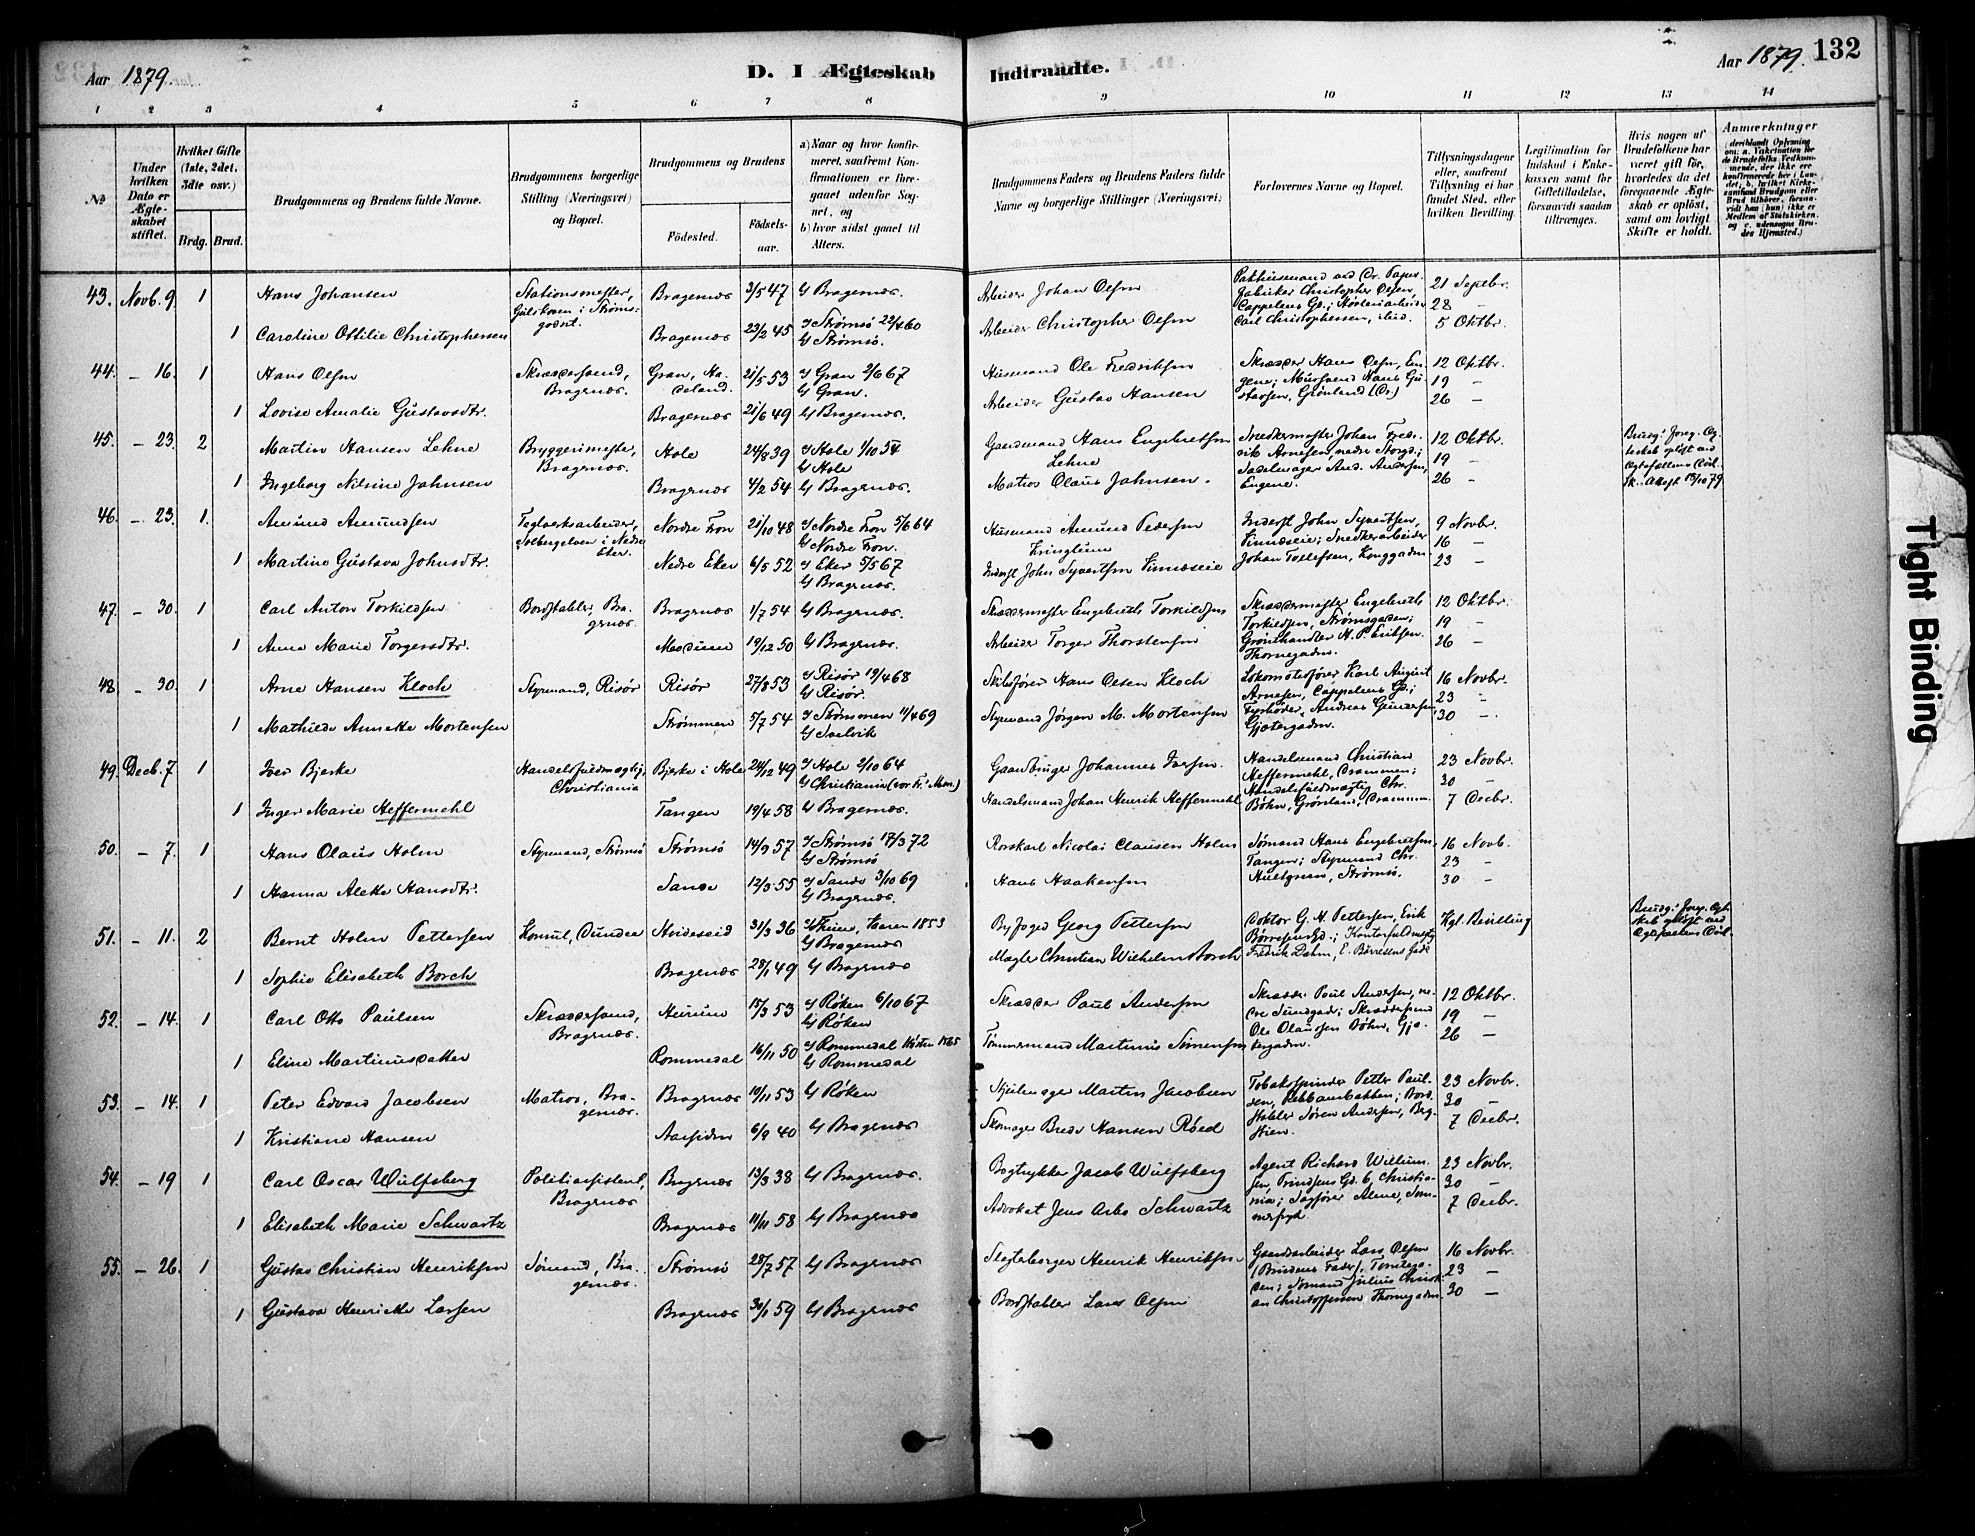 Aar 1879. D. I Ægteskab Indtraadte. Aar 1879. 132
1 2 3 4 5 6 7 8 9 10 11 12 13 14
№
Under hvilken Dato er Ægteskabet stiftet.
Hvilket Gifte (1ste, 2det, 3die osv.)
Brdg. Brud.
Brudgommens og Brudens fulde Navne.
Brudgommens borgerlige Stilling (Næringsvei) og Bopæl.
Brudgommens og Brudens
Födested. Födselsaar.
a) Naar og hvor konfirmeret, saafremt Konfirmationen er foregaaet udenfor Sognet, og
b) hvor sidst gaaet til Alters.
Brudgommens Faders og Brudens Faders fulde Navne og borgerlige Stillinger (Næringsvei)
Forlovernes Navne og Bopæl.
Tillysningsdagene eller, saafremt Tillysning ei har fundet Sted, efter hvilken Bevilling.
Legitimation for Indskud i Enkekassen samt for Giftetilladelse, forsaavidt saadan tiltrænges.
Hvis nogen af Brudefolkene har været gift før, hvorledes da det foregaaende Ægteskab er oplöst, samt om lovligt Skifte er holdt.
Anmærkninger
43. Novb. 9 1 Hans Johansen Stationsmester, Gulskoven i Strömsgodset. Bragernæs 3/5 47 b/ Bragernæs. Arbeider Johan Olsen 21 Septbr.
28 –
1 Caroline Ottilie Christophersen Bragernæs 23/2 45 a/ Strømsø 22/4 60 b/ Strømsø. Arbeider Christopher Olsen Carl Christophersen, ibid. 5 Oktbr.
44. – 16. 1 Hans Olsen Skræddersvend, Bragernæs. Gran, Hadeland. 21/5 53 a/ Gran 2/6 67 b/ Gran. Husmand Ole Fredriksen Skrædder Hans Olsen, Engene; Mursvend Hans Gustavsen, Grønland (Dr.) 12 Oktbr.
19 –
1 Lovise Amalie Gustavsdtr. Bragernæs 21/6 49 b/ Bragernæs. Arbeider Gustav Hansen 26 –
45. – 23. 2 Martin Hansen Lehne Bryggerimester, Bragernæs. Hole 24/8 39 a/ Hole 1/10 54 b/ Hole Gaardmand Hans Engebretsen Lehne Snedkermester Johan Fredrik Arnesen, nedre Storgd.; Sadelmager And. Andersen, Engene. 12 Oktbr.
19 –
1 Ingeborg Nilsine Jahnsen Bragernæs 4/2 54 b/ Bragernæs. Matros Olaus Jahnsen. 26 –
46. – 23. 1. Amund Amundsen Teglverksarbeider, Solbergelven i Nedre Eker. Nordre Fron 21/10 48 a/ Nordre Fron 5/6 64 b/ Nordre Fron. Husmand Amund Pedersen Kringlum Inderst John Syvertsen, 9 Novbr.
16 –
1 Martine Gustava Johnsdtr. Nedre Eker 6/5 52 a/ Eker 5/5 67 b/ Bragernæs. Inderst John Syvertsen Johan Tollefsen, Konggaden. 23 –
47. – 30. 1 Carl Anton Torkildsen Bordstabler, Bragernæs. Bragernæs 1/7 54 b/ Bragernæs. Skræddermester Engebreth Torkildsen Skræddermester Engebreth Torkildsen, Strømsgaden; Grønthandler H. P. Eriksen. Thornegaden. 12 Oktbr.
19 –
1 Anna Marie Torgersdtr. Modum 19/12 50 b/ Bragernæs. Arbeider Torger Thorstensen 26 –
48 – 30. 1 Arne Hansen Kloch Styrmand, Risör Risör 27/8 53 a/ Risör 19/4 68 b/ Risör. Skibsfører Hans Olsen Kloch Lokomotivfører Karl August Arnesen, Cappelens Gd.; Fyrbøder Andreas Gundersen, Gjetergaden. 16 Novbr.
23 –
1 Mathilde Annette Mortensen Strømmen 5/7 54 a/ Strømmen 11/4 69 b/ Svelvik Styrmand Jørgen M. Mortensen 30 –.
49. Decb. 7 1 Iver Bjerke Handelsfuldmægtig, Christiania Bjerke i Hole 24/12 49 a/ Hole 2/10 64 b/ Christiania (vor Fr. Men.) Gaardbruger Johannes Iversen. Handelsmand Christian Heffermehl, Drammen; Handelsfuldmægtig Chr. Böhn, Grønland, Drammen. 23 Novbr.
30 –
1 Inger Marie Heffermehl Tangen 19/4 58 b/ Bragernæs. Handelsmand Johan Henrik Heffermehl 7 Decbr.
50. – 7. 1 Hans Olaus Holm Styrmand, Strømsø Strømsø 14/9 57 a/ Strømsø 17/3 72 b/ Strømsø Rorskarl Nicolai Clausen Holm Sømand Hans Engebretsen, Tangen; Styrmand Chr. Hultgreen, Strømsø. 16 Novb.
23 –
1 Hanna Alette Hansdtr. Sande 12/3 55 a/ Sande 3/10 69 b/ Bragernæs. Hans Haakensen 30 –
51. – 11. 2 Bernt Holm Pettersen Konsul, Dundee Hvideseid 31/3 36 b/ Bragernæs Byfoged Georg Pettersen Doktor G. H. Pettersen, Erik Børresens Gd.; Kontorfuldmægtig Fredrik Dahm, E. Børresens Gade Kgl. Bevilling
1 Sophie Elisabeth Borch Bragernæs 28/1 49 b/ Bragernæs Mægler Christian Wilhelm Borch
52. – 14. 1 Carl Otto Paulsen Skræddersvend, Bragernæs. Hurum 15/3 53 a/ Røken 6/10 67 b/ Røken Skrædder Paul Andersen Skrædder Paul Andersen, nedre Sundgade; Skræddersvend Ole Olaussen Böhn, Gjetergaden. 12 Oktbr.
19 –
1 Eline Martinusdatter Rommedal 16/11 50 a/ Rommedal Høsten 1865 b/ Rommedal Tømmermand Martinus Simensen 26 –
53. – 14. 1 Peter Edvard Jacobsen Matros, Bragernæs. Bragernæs 19/11 53 b/ Røken Seilmager Martin Jacobsen Tobakspinder Petter Paulsen, Røbbanbakken; Bordstabler Søren Andersen, Bergstien. 23 Novbr.
30 –
1 Kristiane Hansen Aassiden 6/9 40 b/ Bragernæs Skomager Brede Hansen Røed 7 Decbr.
54. – 19 1 Carl Oscar Wulfsberg Politiassistent, Bragernæs Bragernæs 13/3 38 b/ Bragernæs. Bogtrykker Jacob Wulfsberg Agent Richard Willumsen, Prindsens Gd. 6, Christiania; Sagfører Alme, Sommerfryd. 23 Novbr.
30 –
1 Elisabeth Marie Schwartz Bragernæs 11/11 58 b/ Bragernæs Advokat Jens Arbo Schwartz 7 Decbr.
55. – 26. 1 Gustav Christian Henriksen Sømand, Bragernæs. Strømsø 28/7 57 b/ Bragernæs Slagteborger Henrik Henriksen Gaardsarbeider Lars Olsen (Brudens Fader), Tomtegaden; Sømand Julius Christian Christoffersen Thornegaden. 16 Novbr.
23 –
1 Gustava Henriette Larsen Bragernæs 30/1 59 b/ Bragernæs Bordstabler Lars Olsen 30 –
Tight Binding